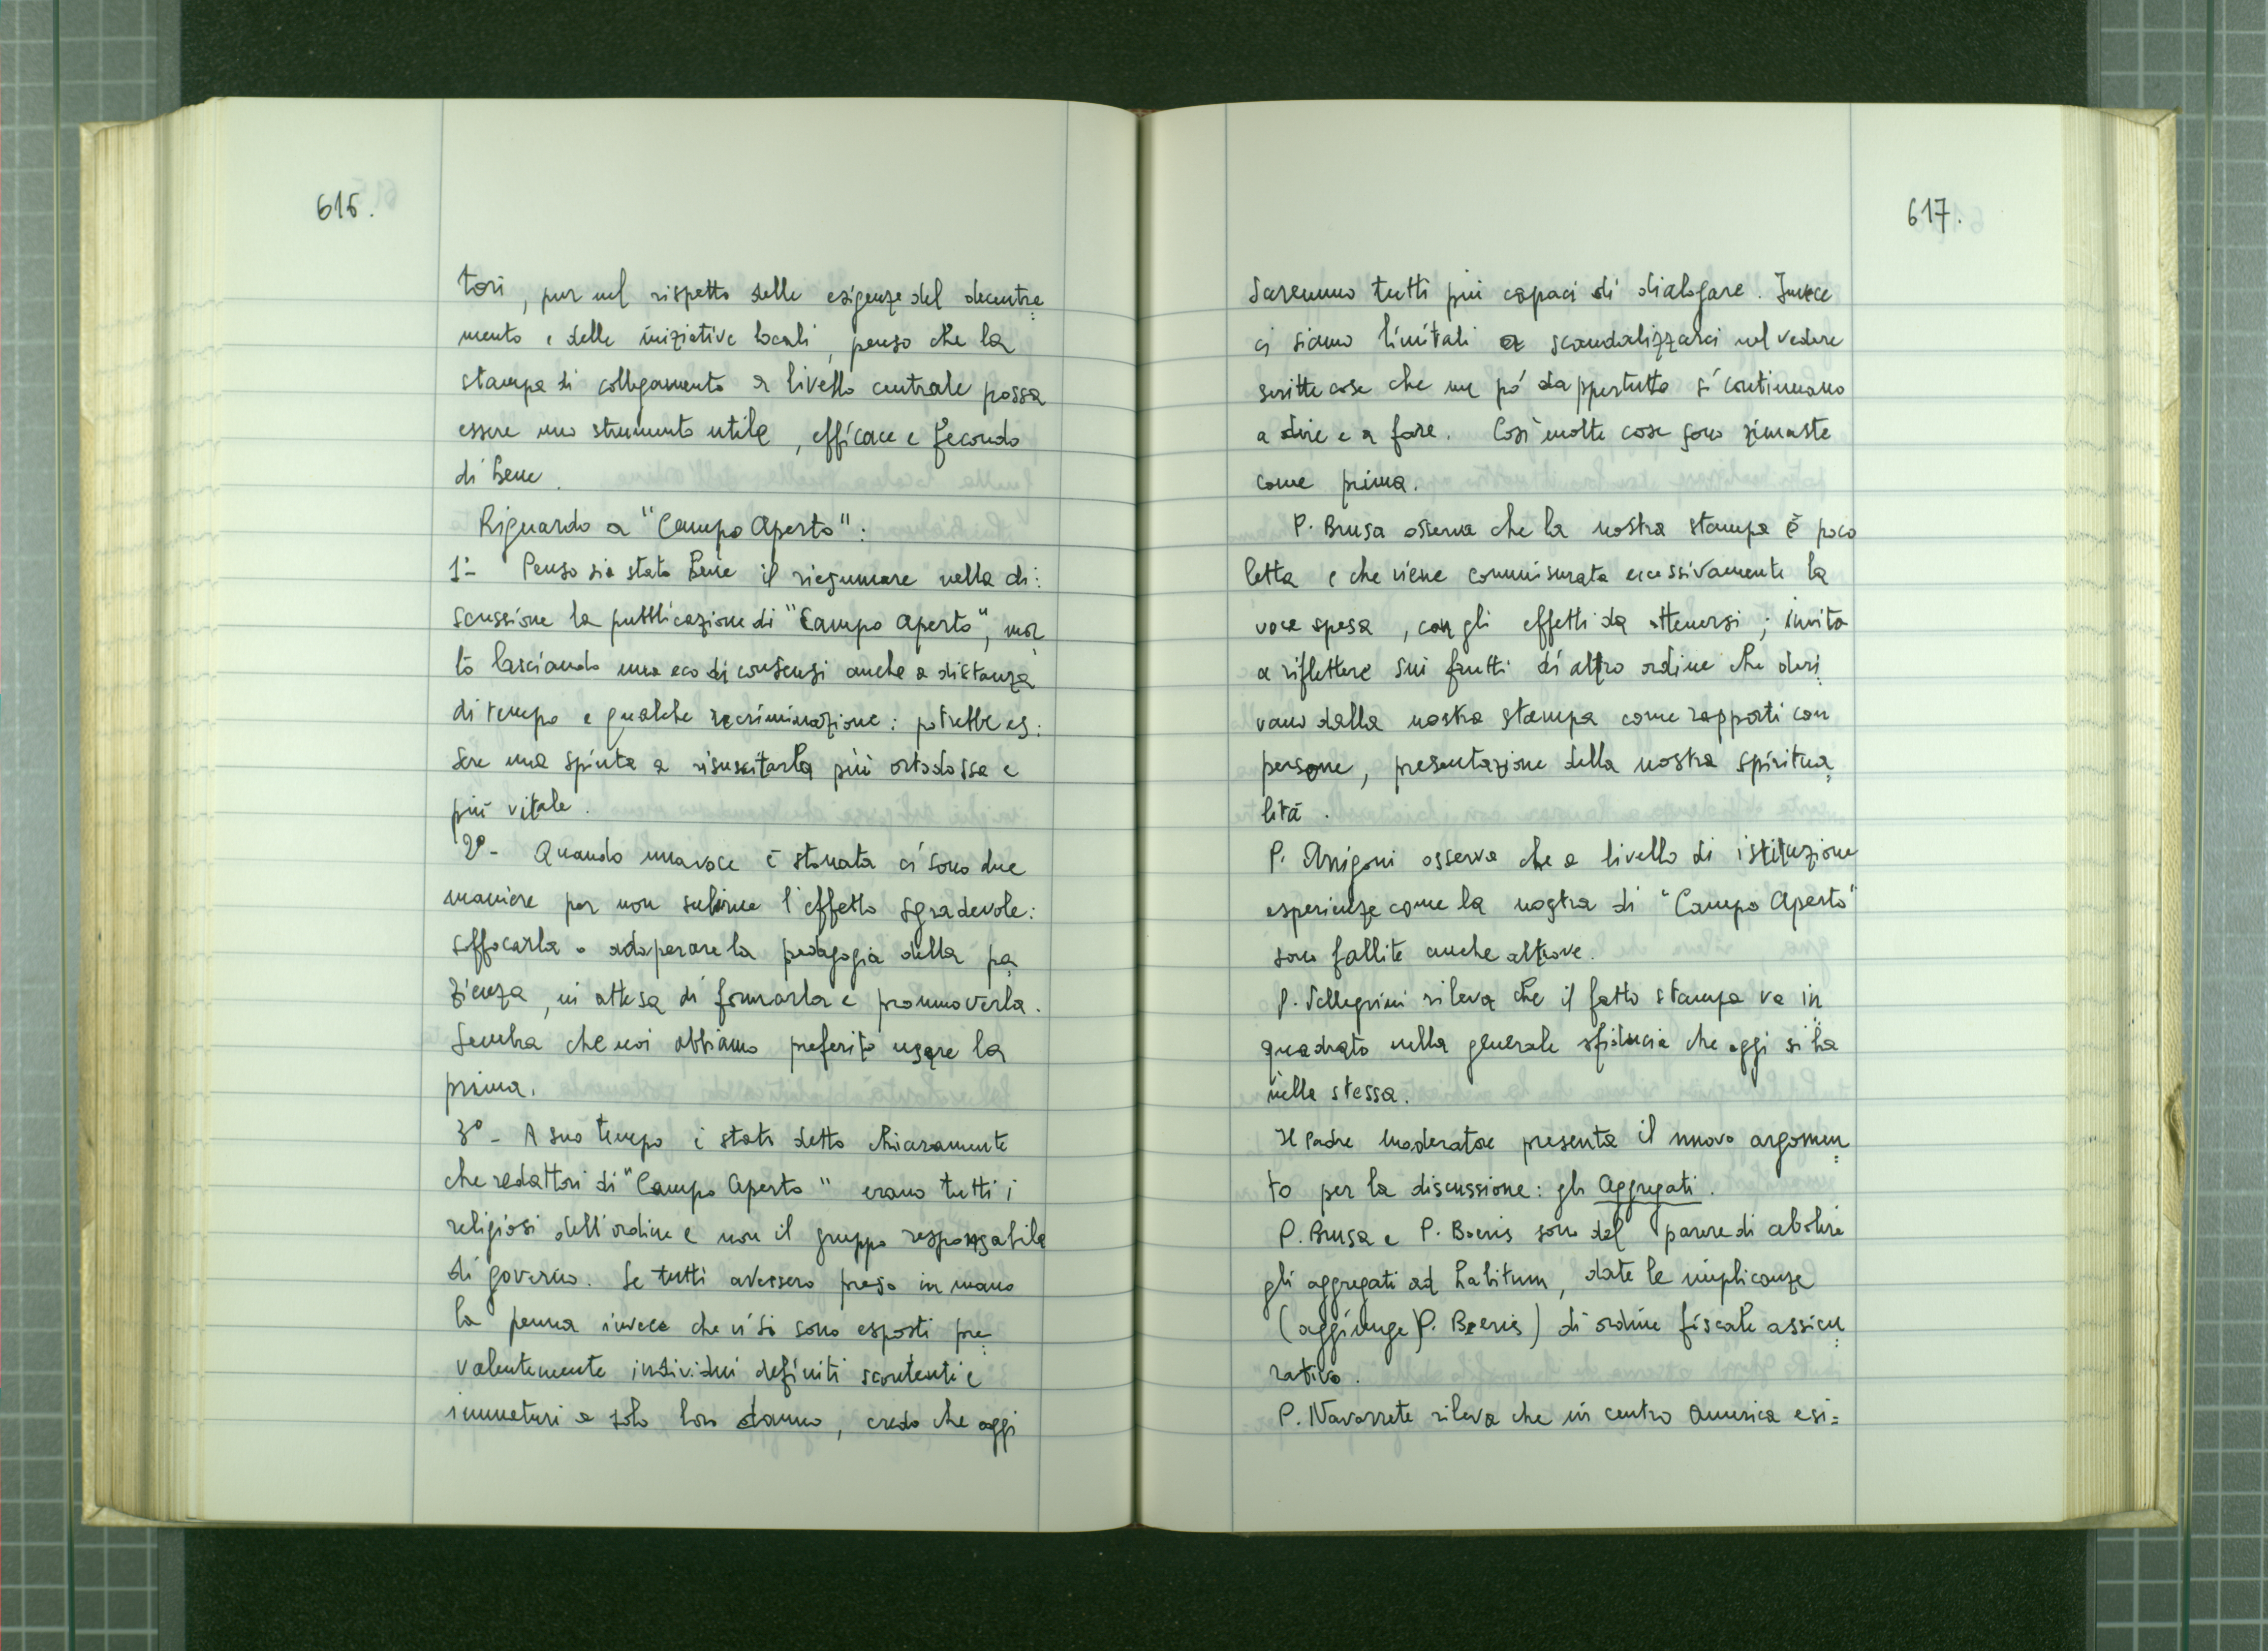 616.
tori, pur nel rispetto delle esigenze del decentra=
mento e delle iniziative locali, penso che la
stampa di collegamento a livello centrale possa
essere uno strumento utile, efficace e fecondo
di bene.
Riguardo a "Campo Aperto":
1° - Penso sia stato bene il riesumare nella di:
scussione la pubblicazione di "Campo Aperto", mor
to lasciando una eco di consensi anche a distanza
di tempo e qualche recriminazione: potrebbe es:
sere una spinta a risuscitarla più ortodossa e
più vitale.
2° - Quando una voce è stonata ci sono due
maniere per non subirne l'effetto sgradevole:
soffocarla o adoperare la pedagogia della pa
zienza, in attesa di formarla e promuoverla.
Sembra che noi abbiamo preferito usare la
prima.
3° - A suo tempo è stato detto chiaramente
che redattori di "Campo Aperto" erano tutti i
religiosi dell'ordine e non il gruppo responsabile
di governo. Se tutti avessero preso in mano
la penna invece che vi si sono esposti pre=
valentemente individui definiti scontenti e
immaturi a solo loro danno, credo che oggi
617.
saremmo tutti più capaci di dialogare. Invece
ci siamo limitati a scandalizzarci nel vedere
scritte cose che un pò dappertutto si continuano
a dire e a fare. Così molte cose sono rimaste
come prima.
P. Brusa osserva che la nostra stampa è poco
letta e che viene commisurata eccessivamente la
voce spesa, con gli effetti da ottenersi; invita
a riflettere sui frutti di altro ordine che deri
vano dalla nostra stampa come rapporti con
persone, presentazione della nostra spiritua
lità.
P. Arrigoni osserva che a livello di istituzione
esperienze come la nostra di "Campo Aperto"
sono fallite anche altrove.
P. Pellegrini rileva che il fatto stampa va in
quadrato nella generale sfiducia che oggi si ha
nella stessa.
Il Padre Moderatore presenta il nuovo argomen=
to per la discussione: gli Aggregati.
P. Brusa e P. Boeris sono del parere di abolire
gli aggregati ad habitum, date le implicanze
(aggiunge P. Boeris) di ordine fiscale assicu=
rativo.
P. Navarrete rileva che in centro America esi=